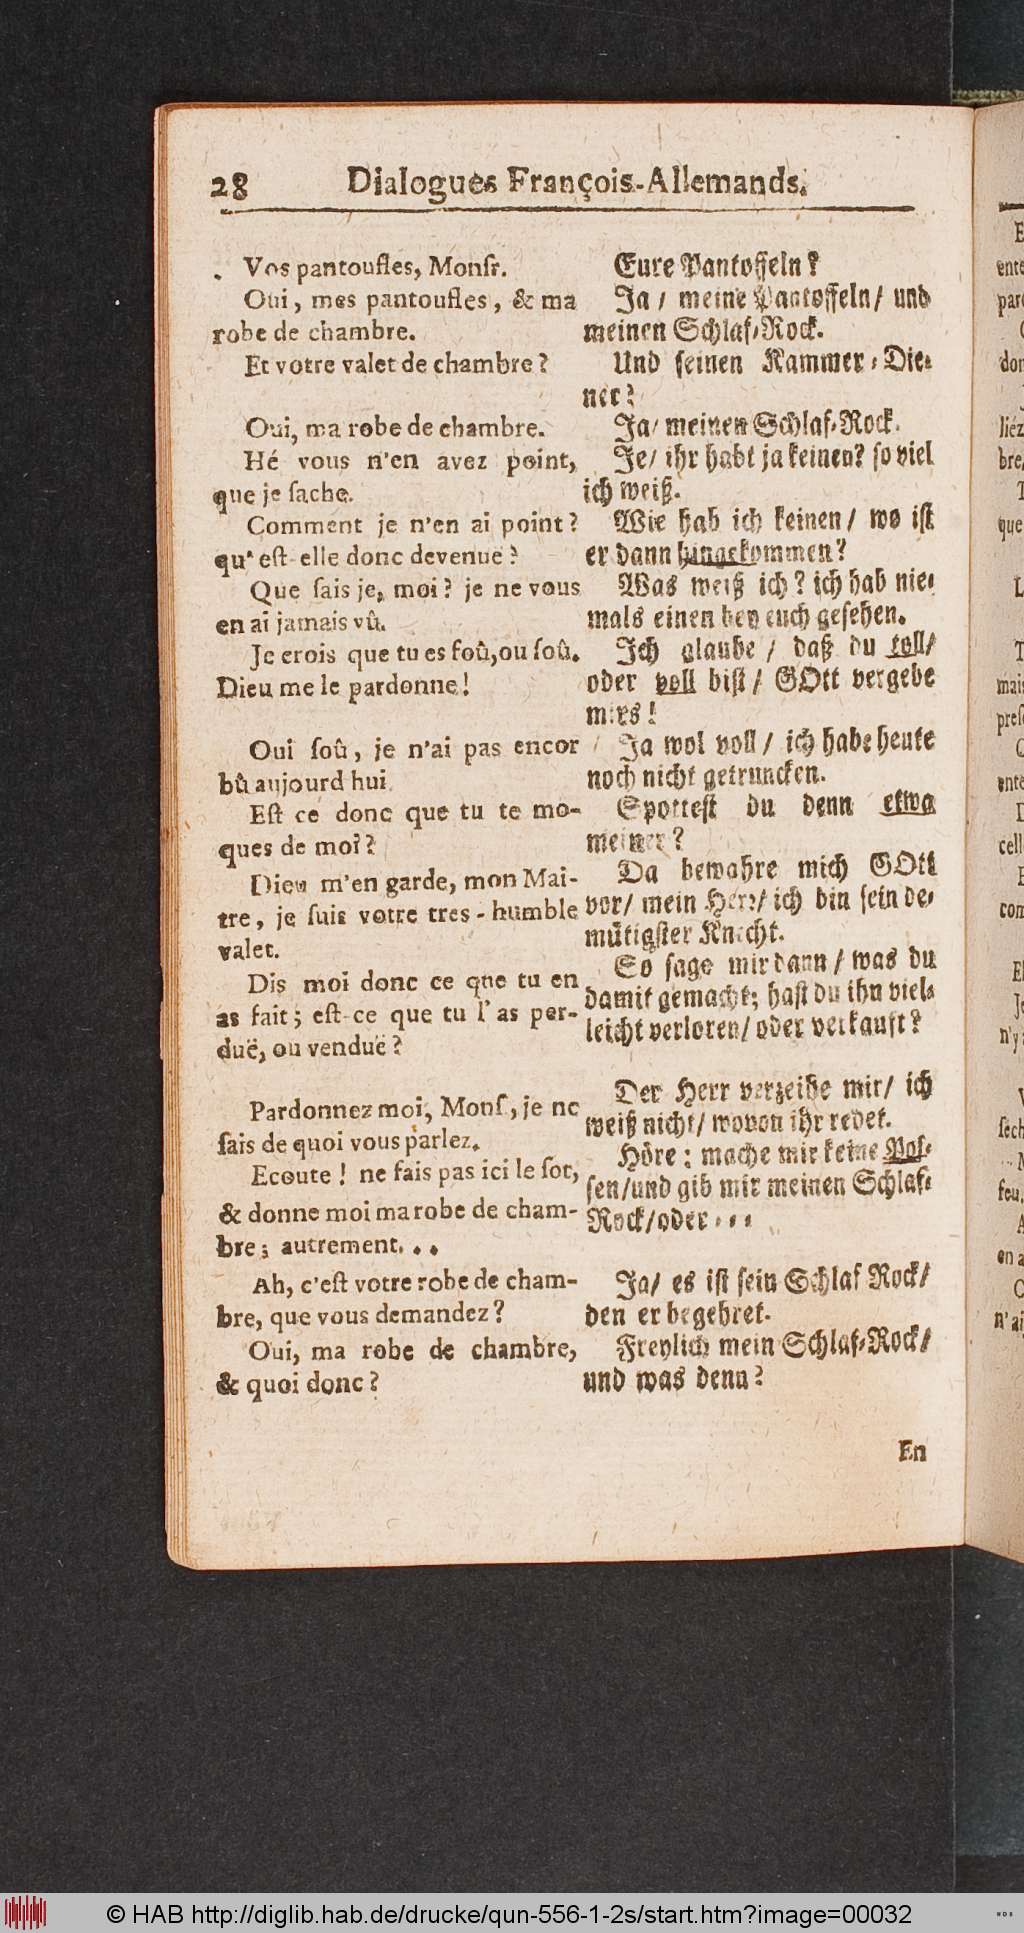 28 Dialogues François-Allemands.
. Vos pantoufles, Monsr.
Oui, mes pantoufles, & ma
robe de chambre.
Et votre valet de chambre?
Oui, ma robe de chambre.
Hé vous n'en avez point,
que je ſache.
Comment je n'en ai point?
qu'eſt-elle donc devenuë?
Que ſais je, moi? je ne vous
en ai jamais vû.
Je crois que tu es foû, ou ſoû.
Dieu me le pardonne!
Oui ſoû, je n'ai pas encor
bû aujourd hui
Eſt ce donc que tu te mo-
ques de moi?
Dieu m'en garde, mon Mai-
tre, je ſuis votre tres-humble
valet.
Dis moi donc ce que tu en
as fait; eſt-ce que tu l'as per-
duë, ou venduë?
Pardonnez moi, Monſ., je ne
ſais de quoi vous parlez.
Ecoute! ne fais pas ici le ſot,
& donne moi ma robe de cham-
bre; autrement...
Ah, c'eſt votre robe de cham-
bre, que vous demandez?
Oui, ma robe de chambre,
& quoi donc?
Eure Pantoffeln?
Ja / meine Pantoffeln/ und
meinen Schlaf-Rock.
Und ſeinen Kammer-Die-
ner?
Ja/ meinen Schlaf-Rock.
Je/ ihr habt ja keinen? ſo viel
ich weiß.
Wie hab ich keinen/ wo iſt
er dann hingekommen?
Was weiß ich? ich hab nie-
mals einen bey euch geſehen.
Ich glaube / daß du toll/
oder voll biſt/ GOtt vergebe
mirs!
Ja wol voll/ ich habe heute
noch nicht getruncken.
Spotteſt du denn etwa
meiner?
Da bewahre mich GOtt
vor/ mein Herr/ ich bin ſein de-
mütigſter Knecht.
So ſage mir dann/ was du
damit gemacht; haſt du ihn viel-
leicht verloren/ oder verkauft?
Der Herr verzeihe mir/ ich
weiß nicht/ wovon ihr redet.
Höre: mache mir keine Poſ-
ſen/und gib mir meinen Schlaf-
Rock/oder - - -
Ja/ es iſt ſein Schlaf Rock/
den er begehret.
Freylich mein Schlaf-Rock/
und was denn?
En
© HAB http://diglib.hab.de/drucke/qun-556-1-2s/start.htm?image=00032